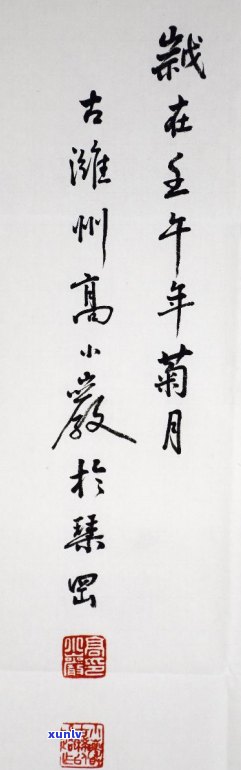 嵗在壬午年菊月
古濰州高小巖於琴岡
xunlv